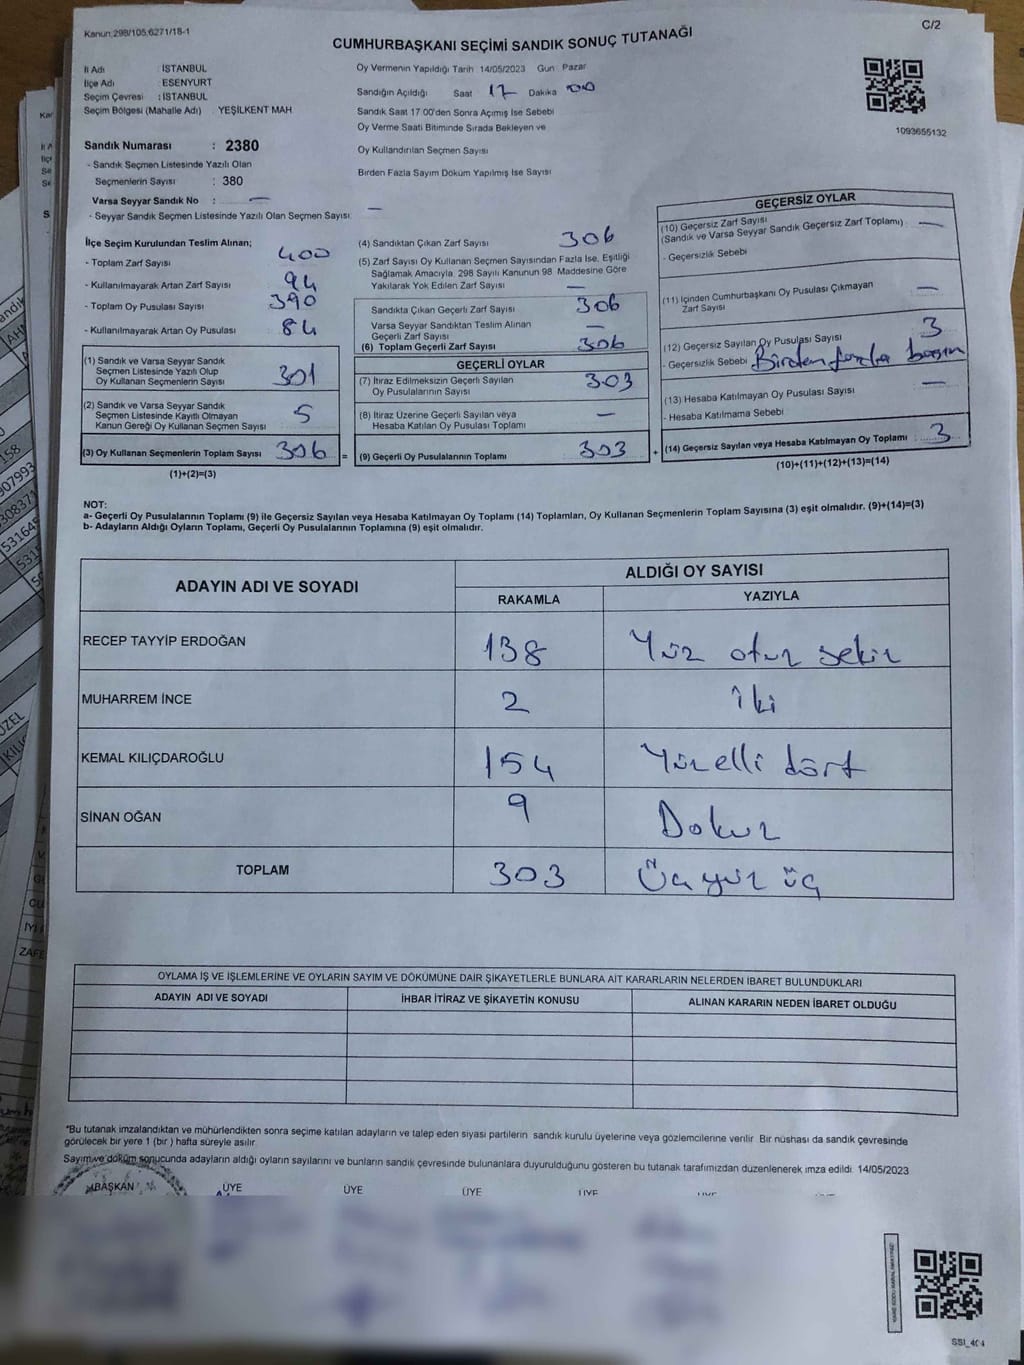 Kanun:298/105,6271/18-1
C/2
CUMHURBAŞKANI SEÇİMİ SANDIK SONUÇ TUTANAĞI
İl Adı : İSTANBUL
İlçe Adı : ESENYURT
Seçim Çevresi : İSTANBUL
Seçim Bölgesi (Mahalle Adı) : YEŞİLKENT MAH
Oy Vermenin Yapıldığı Tarih 14/05/2023 Gün : Pazar
Sandığın Açıldığı Saat 17 Dakika 00
Sandık Saat 17.00'den Sonra Açılmış İse Sebebi
Oy Verme Saati Bitiminde Sırada Bekleyen ve
Oy Kullandırılan Seçmen Sayısı
Birden Fazla Sayım Döküm Yapılmış İse Sayısı
1093655132
Sandık Numarası : 2380
- Sandık Seçmen Listesinde Yazılı Olan
Seçmenlerin Sayısı : 380
Varsa Seyyar Sandık No : —
- Seyyar Sandık Seçmen Listesinde Yazılı Olan Seçmen Sayısı —
İlçe Seçim Kurulundan Teslim Alınan;
- Toplam Zarf Sayısı : 400
- Kullanılmayarak Artan Zarf Sayısı : 94
- Toplam Oy Pusulası Sayısı : 390
- Kullanılmayarak Artan Oy Pusulası : 84
(1) Sandık ve Varsa Seyyar Sandık
Seçmen Listesinde Yazılı Olup
Oy Kullanan Seçmenlerin Sayısı : 301
(2) Sandık ve Varsa Seyyar Sandık
Seçmen Listesinde Kayıtlı Olmayan
Kanun Gereği Oy Kullanan Seçmen Sayısı : 5
(3) Oy Kullanan Seçmenlerin Toplam Sayısı : 306 =
(1)+(2)=(3)
(4) Sandıktan Çıkan Zarf Sayısı : 306
(5) Zarf Sayısı Oy Kullanan Seçmen Sayısından Fazla İse, Eşitliği
Sağlamak Amacıyla, 298 Sayılı Kanunun 98. Maddesine Göre
Yakılarak Yok Edilen Zarf Sayısı : —
Sandıkta Çıkan Geçerli Zarf Sayısı : 306
Varsa Seyyar Sandıktan Teslim Alınan
Geçerli Zarf Sayısı : —
(6) Toplam Geçerli Zarf Sayısı : 306
GEÇERLİ OYLAR
(7) İtiraz Edilmeksizin Geçerli Sayılan
Oy Pusulalarının Sayısı : 303
(8) İtiraz Üzerine Geçerli Sayılan veya
Hesaba Katılan Oy Pusulası Toplamı : —
(9) Geçerli Oy Pusulalarının Toplamı : 303 +
GEÇERSİZ OYLAR
(10) Geçersiz Zarf Sayısı
(Sandık ve Varsa Seyyar Sandık Geçersiz Zarf Toplamı) : —
- Geçersizlik Sebebi
(11) İçinden Cumhurbaşkanı Oy Pusulası Çıkmayan
Zarf Sayısı : —
(12) Geçersiz Sayılan Oy Pusulası Sayısı : 3
- Geçersizlik Sebebi Birden fazla basım
(13) Hesaba Katılmayan Oy Pusulası Sayısı : —
- Hesaba Katılmama Sebebi
(14) Geçersiz Sayılan veya Hesaba Katılmayan Oy Toplamı : 3
(10)+(11)+(12)+(13)=(14)
NOT:
a- Geçerli Oy Pusulalarının Toplamı (9) ile Geçersiz Sayılan veya Hesaba Katılmayan Oy Toplamı (14) Toplamları, Oy Kullanan Seçmenlerin Toplam Sayısına (3) eşit olmalıdır. (9)+(14)=(3)
b- Adayların Aldığı Oyların Toplamı, Geçerli Oy Pusulalarının Toplamına (9) eşit olmalıdır.
ADAYIN ADI VE SOYADI
ALDIĞI OY SAYISI
RAKAMLA YAZIYLA
RECEP TAYYİP ERDOĞAN 138 Yüz otuz sekiz
MUHARREM İNCE 2 İki
KEMAL KILIÇDAROĞLU 154 Yüzelli dört
SİNAN OĞAN 9 Dokuz
TOPLAM 303 Üçyüz üç
OYLAMA İŞ VE İŞLEMLERİNE VE OYLARIN SAYIM VE DÖKÜMÜNE DAİR ŞİKAYETLERLE BUNLARA AİT KARARLARIN NELERDEN İBARET BULUNDUKLARI
ADAYIN ADI VE SOYADI İHBAR İTİRAZ VE ŞİKAYETİN KONUSU ALINAN KARARIN NEDEN İBARET OLDUĞU
*Bu tutanak imzalandıktan ve mühürlendikten sonra seçime katılan adayların ve talep eden siyasi partilerin sandık kurulu üyelerine veya gözlemcilerine verilir. Bir nüshası da sandık çevresinde
görülecek bir yere 1 (bir ) hafta süreyle asılır.
Sayım ve döküm sonucunda adayların aldığı oyların sayılarını ve bunların sandık çevresinde bulunanlara duyurulduğunu gösteren bu tutanak tarafımızdan düzenlenerek imza edildi. 14/05/2023
BAŞKAN ÜYE ÜYE ÜYE ÜYE